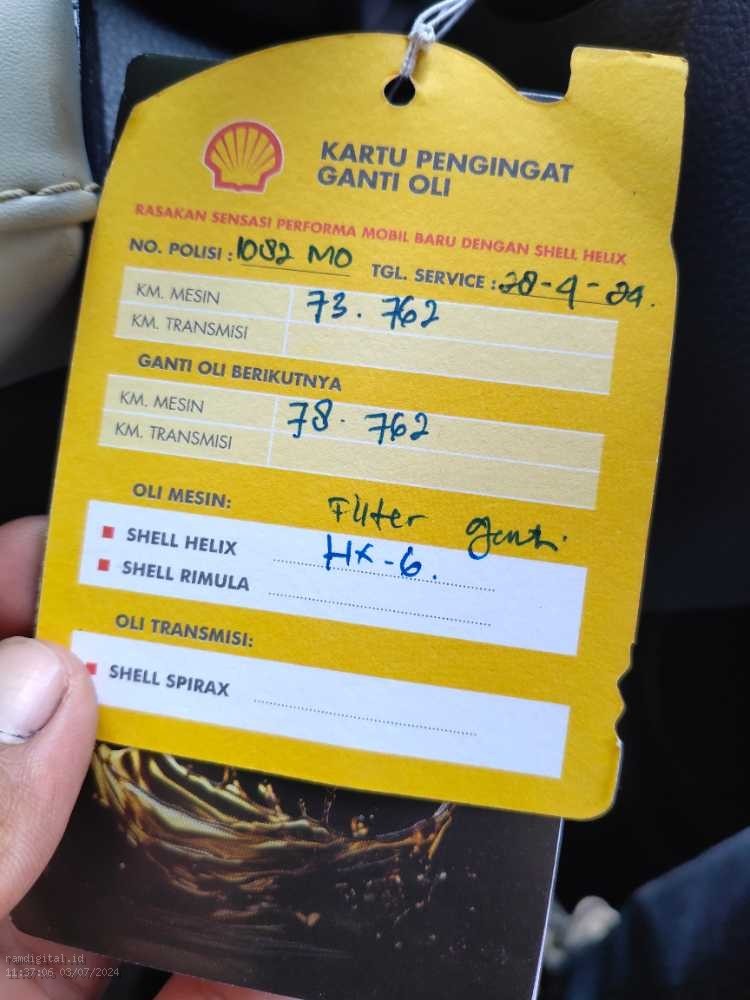 KARTU PENGINGAT
GANTI OLI
RASAKAN SENSASI PERFORMA MOBIL BARU DENGAN SHELL HELIX
NO. POLISI : 1082 MO TGL. SERVICE : 28-4-24.
KM. MESIN 73.762
KM. TRANSMISI
GANTI OLI BERIKUTNYA
KM. MESIN 78.762
KM. TRANSMISI
OLI MESIN: Filter ganti
SHELL HELIX HX-6.
SHELL RIMULA
OLI TRANSMISI:
SHELL SPIRAX
ramdigital.id
11:37:06 03/07/2024